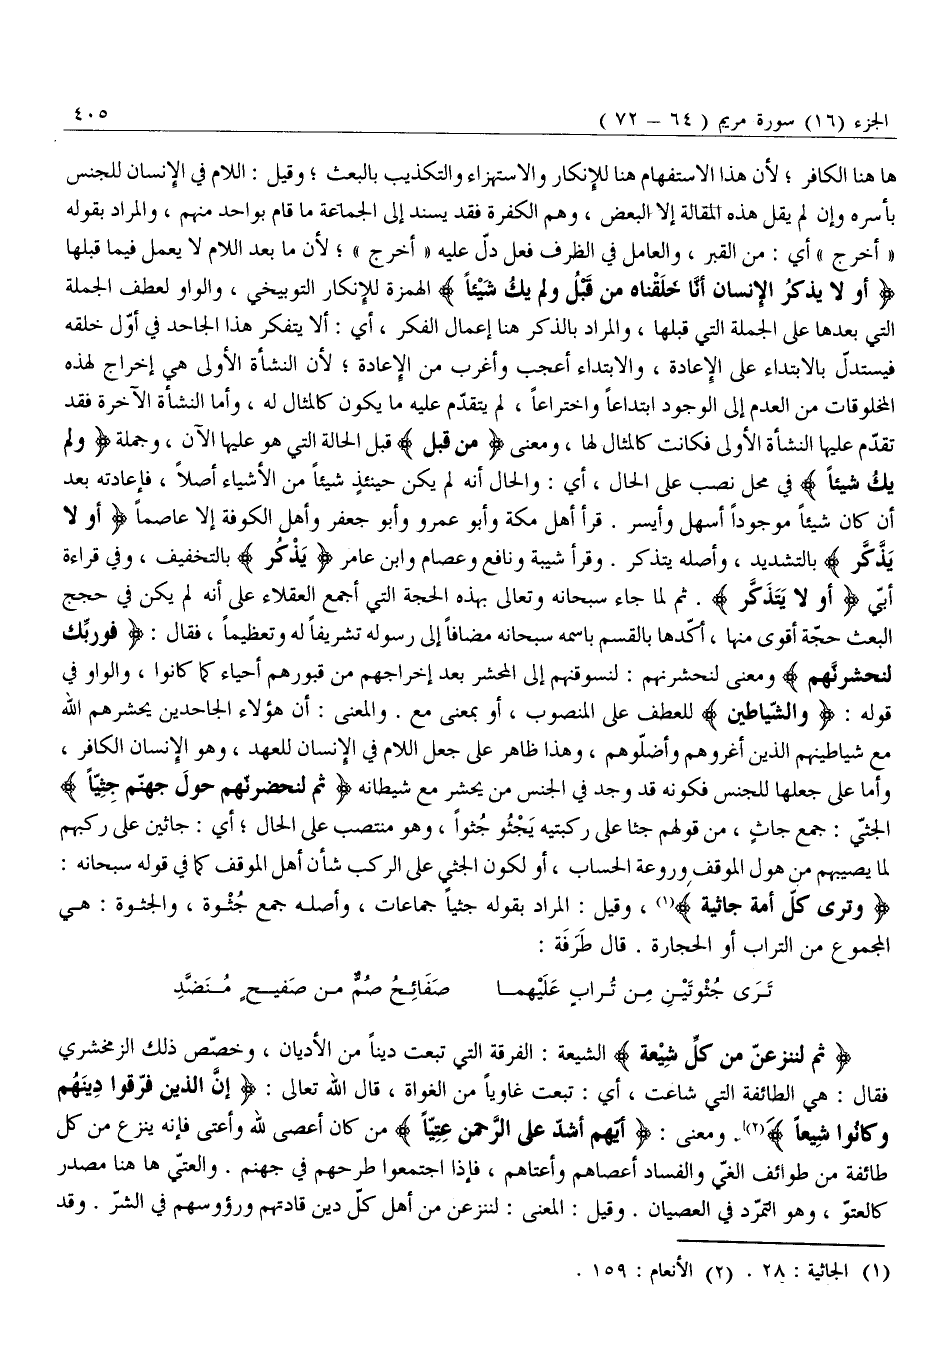 الجزء (١٦) سورة مريم ( ٦٤ – ٧٢ ) ٤٠٥
ها هنا الكافر ؛ لأن هذا الاستفهام هنا للإنكار والاستهزاء والتكذيب بالبعث ؛ وقيل : اللام في الإنسان للجنس
بأسره وإن لم يقل هذه المقالة إلا البعض ، وهم الكفرة فقد يسند إلى الجماعة ما قام بواحد منهم ، والمراد بقوله
« أخرج » أي : من القبر ، والعامل في الظرف فعل دلّ عليه « أخرج » ؛ لأن ما بعد اللام لا يعمل فيما قبلها
﴿ أو لا يذكرُ الإنسان أنَّا خلَقْناه من قَبْلُ ولم يكُ شَيْئاً ﴾ الهمزة للإنكار التوبيخي ، والواو لعطف الجملة
التي بعدها على الجملة التي قبلها ، والمراد بالذكر هنا إعمال الفكر ، أي : ألا يتفكر هذا الجاحد في أوّل خلقه
فيستدلّ بالابتداء على الإعادة ، والابتداء أعجب وأغرب من الإعادة ؛ لأن النشأة الأولى هي إخراج لهذه
المخلوقات من العدم إلى الوجود ابتداعاً واختراعاً ، لم يتقدّم عليه ما يكون كالمثال له ، وأما النشأة الآخرة فقد
تقدّم عليها النشأة الأولى فكانت كالمثال لها ، ومعنى ﴿ من قبل ﴾ قبل الحالة التي هو عليها الآن ، وجملة ﴿ ولم
يكُ شيئاً ﴾ في محل نصب على الحال ، أي : والحال أنه لم يكن حينئذٍ شيئاً من الأشياء أصلاً ، فإعادته بعد
أن كان شيئاً موجوداً أسهل وأيسر . قرأ أهل مكة وأبو عمرو وأبو جعفر وأهل الكوفة إلا عاصماً ﴿ أو لا
يَذَّكَّر ﴾ بالتشديد ، وأصله يتذكر . وقرأ شيبة ونافع وعصام وابن عامر ﴿ يَذْكُر ﴾ بالتخفيف ، وفي قراءة
أبيّ ﴿ أو لا يَتَذَكَّر ﴾ . ثم لما جاء سبحانه وتعالى بهذه الحجة التي أجمع العقلاء على أنه لم يكن في حجج
البعث حجّة أقوى منها ، أكّدها بالقسم باسمه سبحانه مضافاً إلى رسوله تشريفاً له وتعظيماً ، فقال : ﴿ فوربِّك
لنحشرنَّهم ﴾ ومعنى لنحشرنهم : لنسوقنهم إلى المحشر بعد إخراجهم من قبورهم أحياء كما كانوا ، والواو في
قوله : ﴿ والشّياطين ﴾ للعطف على المنصوب ، أو بمعنى مع . والمعنى : أن هؤلاء الجاحدين يحشرهم الله
مع شياطينهم الذين أغروهم وأضلّوهم ، وهذا ظاهر على جعل اللام في الإنسان للعهد ، وهو الإنسان الكافر ،
وأما على جعلها للجنس فكونه قد وجد في الجنس من يحشر مع شيطانه ﴿ ثم لنحضرنّهم حولَ جهنّم جِثِيّاً ﴾
الجثيّ : جمع جاثٍ ، من قولهم جثا على ركبتيه يَجْثُو جُثواً ، وهو منتصب على الحال ؛ أي : جاثين على ركبهم
لما يصيبهم من هول الموقف وروعة الحساب ، أو لكون الجثي على الركب شأن أهل الموقف كما في قوله سبحانه :
﴿ وترى كلّ أمة جاثية ﴾(١) ، وقيل : المراد بقوله جثياً جماعات ، وأصله جمع جُثْوة ، والجثوة : هي
المجموع من التراب أو الحجارة . قال طَرَفَة :
تَرَى جُثْوتَيْنِ مِن تُرابٍ عَلَيْهما صَفَائِحُ صُمٌّ من صَفيحٍ مُنَضَّدِ
﴿ ثم لننزعنّ من كلِّ شِيْعة ﴾ الشيعة : الفرقة التي تبعت ديناً من الأديان ، وخصّص ذلك الزمخشري
فقال : هي الطائفة التي شاعت ، أي : تبعت غاوياً من الغواة ، قال الله تعالى : ﴿ إنَّ الذين فرّقوا دِينَهُم
وكانُوا شِيعاً ﴾(٢). ومعنى : ﴿ أيّهم أشدّ على الرَّحمن عِتِيّاً ﴾ من كان أعصى لله وأعتى فإنه ينزع من كل
طائفة من طوائف الغيّ والفساد أعصاهم وأعتاهم ، فإذا اجتمعوا طرحهم في جهنم . والعتيّ ها هنا مصدر
كالعتوّ ، وهو التمرّد في العصيان . وقيل : المعنى : لننزعن من أهل كلّ دين قادتهم ورؤوسهم في الشرّ . وقد
(١) الجاثية : ٢٨ . (٢) الأنعام : ١٥٩ .